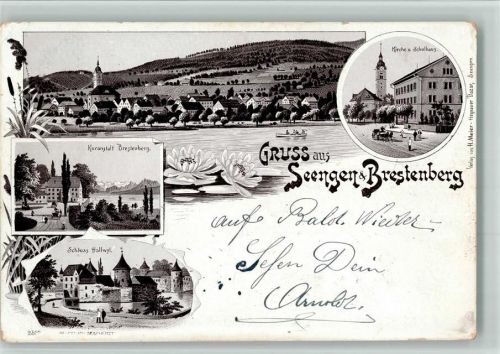 Kirche u. Schulhaus.
Kuranstalt Brestenberg.
GRUSS aus
Seengen & Brestenberg
Schloss Hallwyl.
auf Bald. Wieder-
Sehen Dein
Arnold.
Verlag von H. Meier- Bazar, Seengen